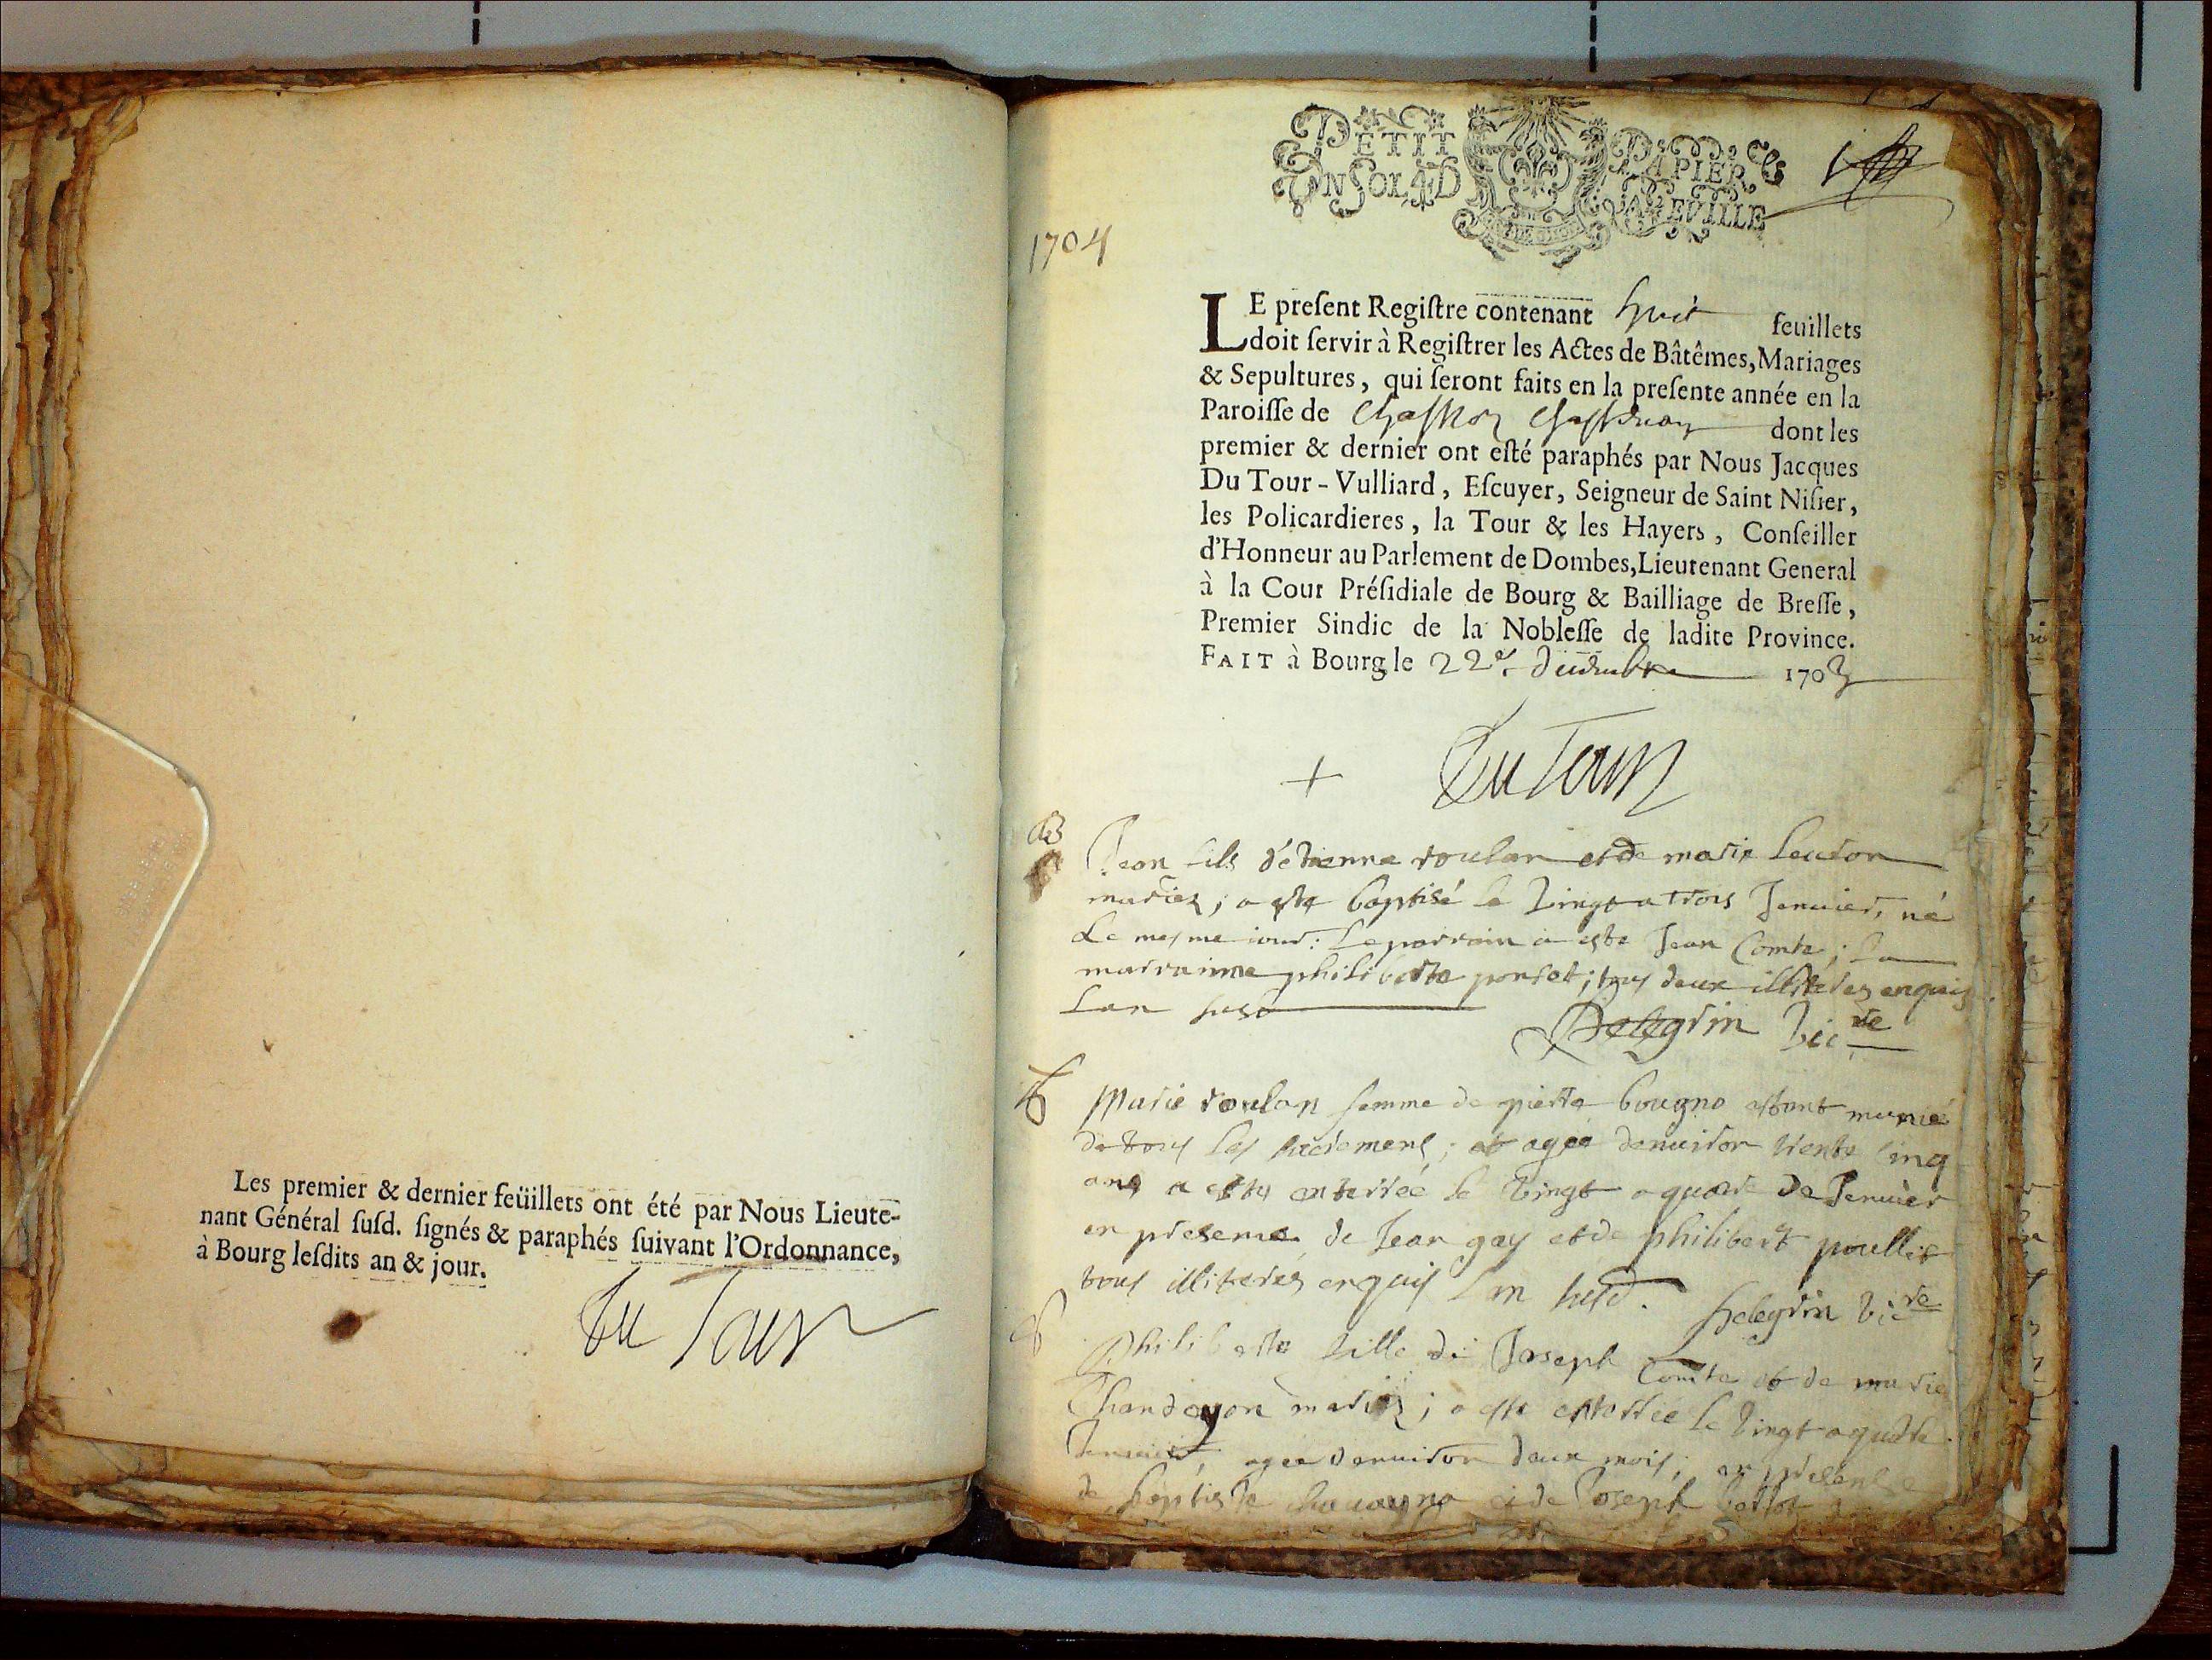 Les premier & dernier feüillets ont été par Nous Lieute-
nant Général ſuſd. ſignés & paraphés ſuivant l'Ordonnance,
à Bourg leſdits an & jour.
Du Tour
PETIT PAPIER
UN SOL 4 D
1704
LE preſent Regiſtre contenant huit feuillets
doit ſervir à Regiſtrer les Actes de Bâtêmes, Mariages
& Sepultures, qui ſeront faits en la preſente année en la
Paroiſſe de dont les
premier & dernier ont eſté paraphés par Nous Jacques
Du Tour-Vulliard, Eſcuyer, Seigneur de Saint Niſier,
les Policardieres, la Tour & les Hayers, Conſeiller
d'Honneur au Parlement de Dombes, Lieutenant General
à la Cour Préſidiale de Bourg & Bailliage de Breſſe,
Premier Sindic de la Nobleſſe de ladite Province.
FAIT à Bourg le 22e decembre 1703
+ Du Tour
B
Jean fils d'étienne roulan et de marie
mariez; a este baptisé le vingt a trois Janvier, né
Le mesme iour: Le parrain a este Jean Comte; la
marrainne philiberte ; tous deux illiterez enquis
Lan susd
Pelegrin Vicre
Marie roulan femme de pierre bougno estant munie
de tous les sacremens; et agée denuiron trente cinq
ans a esté enterrée le vingt a quatre de Janvier
en presence de Jean gay et de philibert
tous illiterez enquis Lan susd. pelegrin Vicre
Philiberte fille de Joseph Comte et de marie
mariez; a este enterrée le vingt a quatre
Janvier, agée denuiron deux mois; en presence
de baptiste et de Joseph